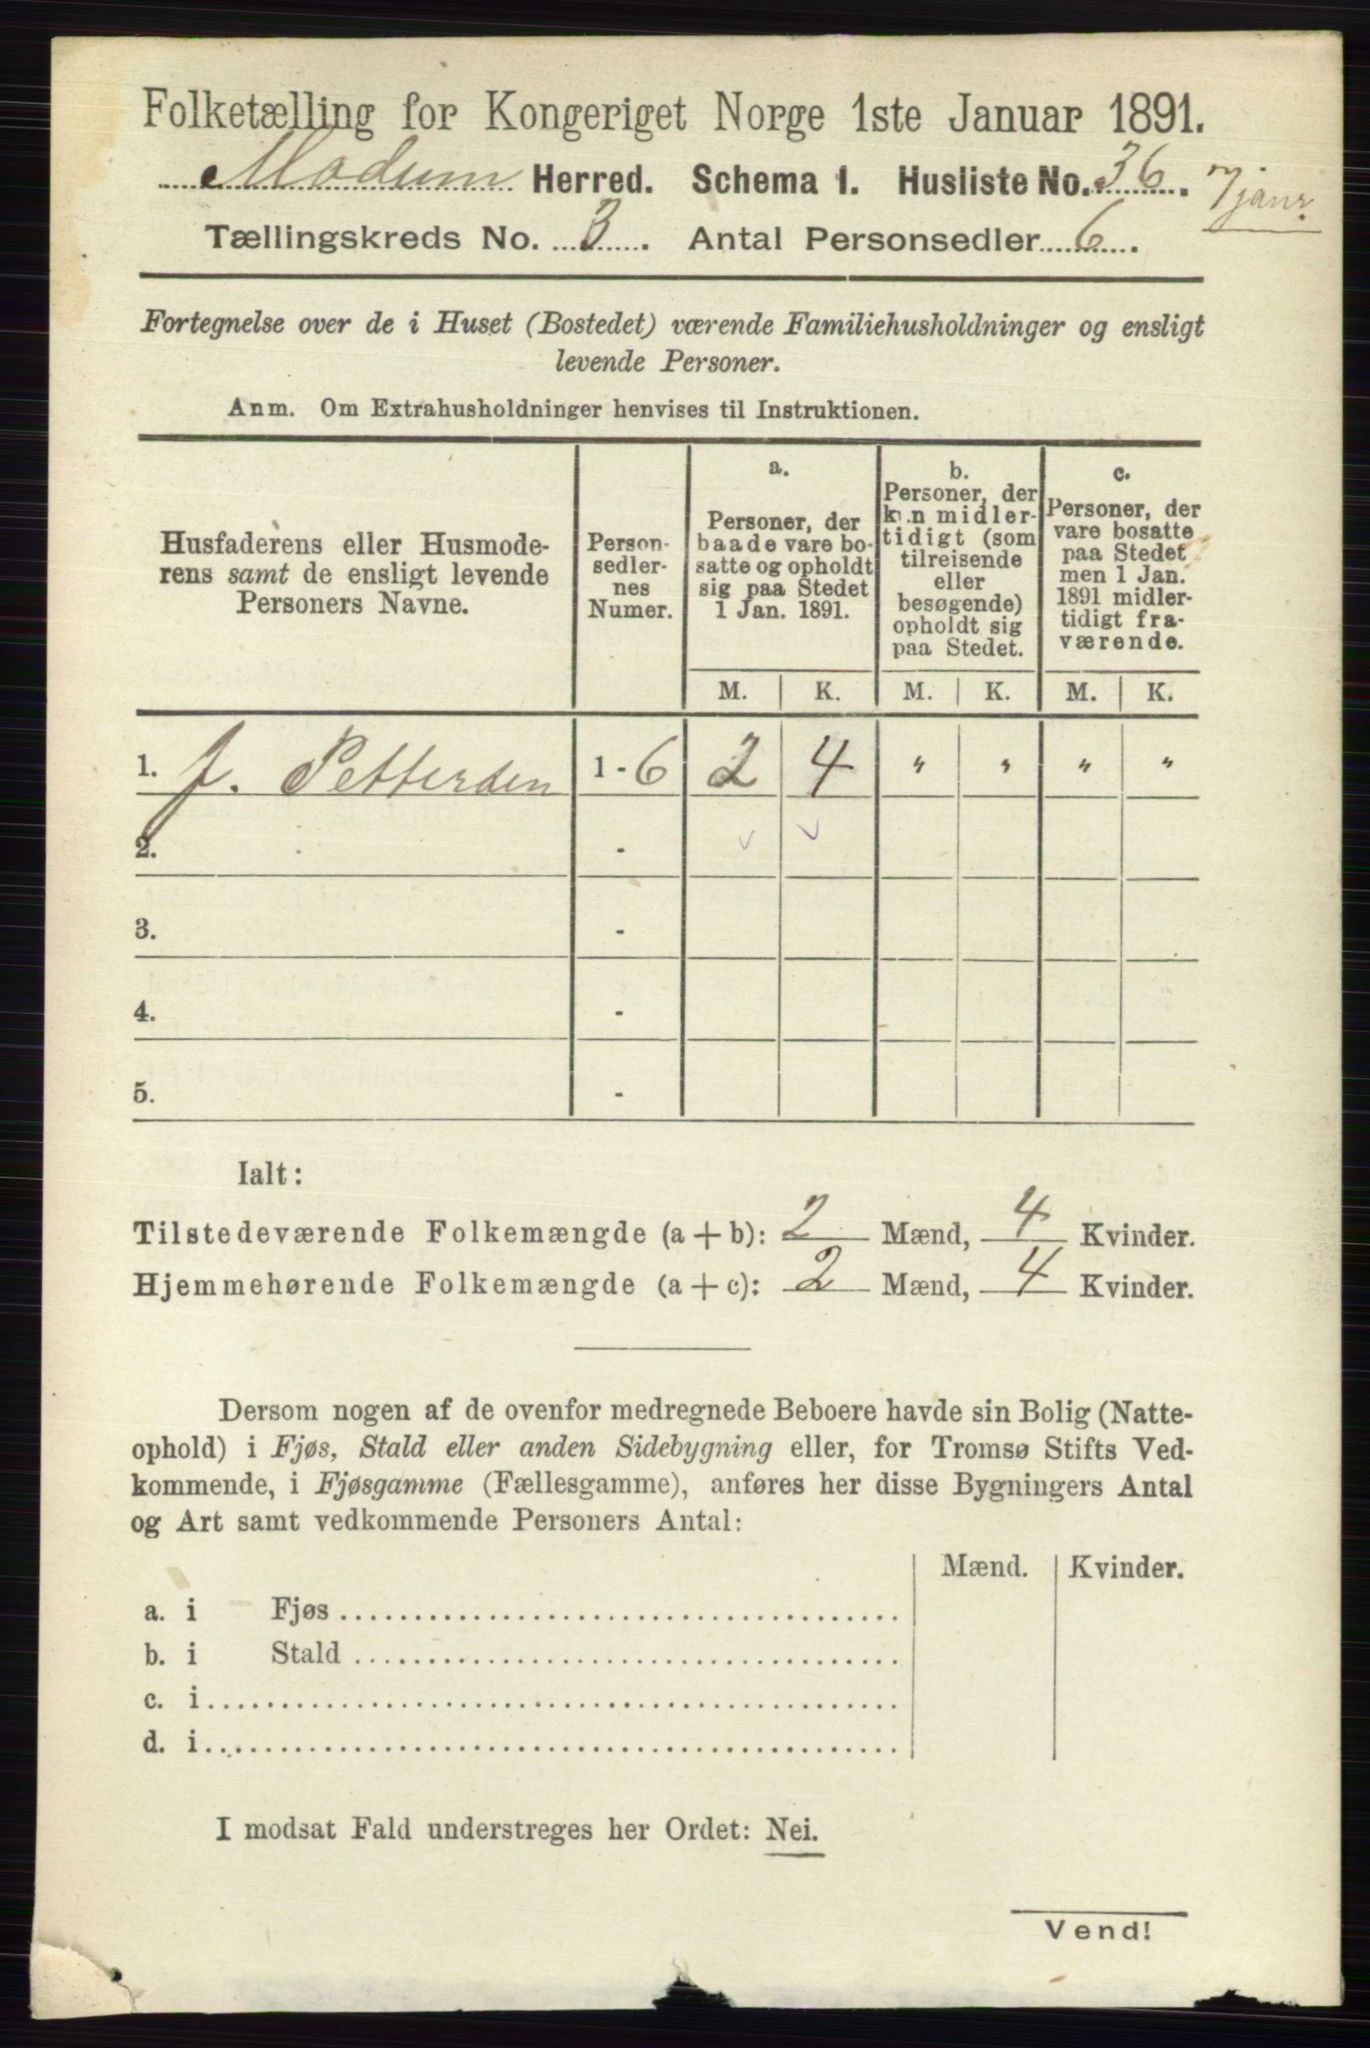 Folketælling for Kongeriget Norge 1ste Januar 1891.
Modum Herred. Schema 1. Husliste No. 36. 7 janr
Tællingskreds No. 3. Antal Personsedler 6.
Fortegnelse over de i Huset (Bostedet) værende Familiehusholdninger og ensligt
levende Personer.
Anm. Om Extrahusholdninger henvises til Instruktionen.
Husfaderens eller Husmode-
rens samt de ensligt levende
Personers Navne.
Person-
sedler-
nes
Numer.
a.
Personer, der
baade vare bo-
satte og opholdt
sig paa Stedet
1 Jan. 1891.
b.
Personer, der
kun midler-
tidigt (som
tilreisende
eller
besøgende)
opholdt sig
paa Stedet.
c.
Personer, der
vare bosatte
paa Stedet
men 1 Jan.
1891 midler-
tidigt fra-
værende.
M. K. M. K. M. K.
1. J. Pettersen 1 - 6 2 4 " " " "
2. -
3. -
4. -
5. -
Ialt:
Tilstedeværende Folkemængde (a + b): 2 Mænd, 4 Kvinder.
Hjemmehørende Folkemængde (a + c): 2 Mænd, 4 Kvinder.
Dersom nogen af de ovenfor medregnede Beboere havde sin Bolig (Natte-
ophold) i Fjøs, Stald eller anden Sidebygning eller, for Tromsø Stifts Ved-
kommende, i Fjøsgamme (Fællesgamme), anføres her disse Bygningers Antal
og Art samt vedkommende Personers Antal:
Mænd. Kvinder.
a. i Fjøs
b. i Stald
c. i
d. i
I modsat Fald understreges her Ordet: Nei.
Vend!